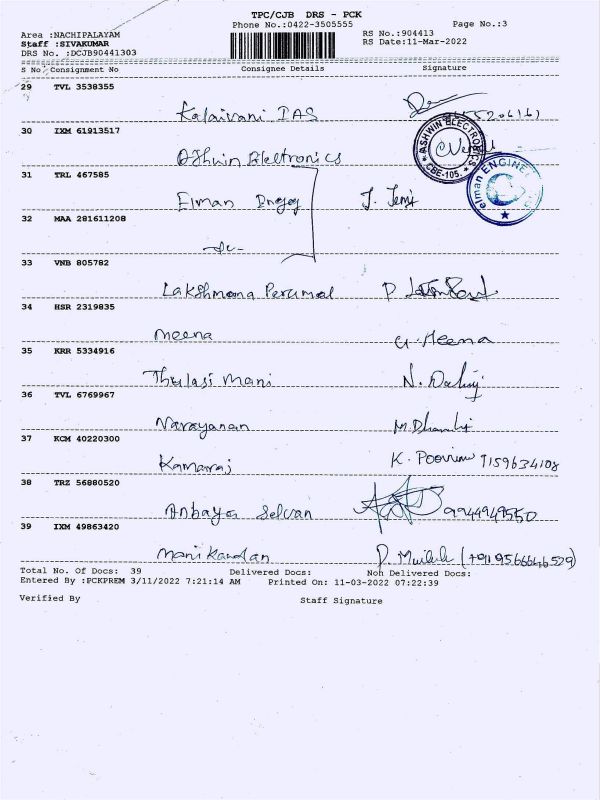 TPC/CJB DRS - PCK
Phone No.:0422-3505555
Page No.:3
Area :NACHIPALAYAM
RS No.:904413
Staff :SIVAKUMAR
RS Date:11-Mar-2022
DRS No. :DCJB90441303
S No Consignment No Consignee Details Signature
29 TVL 3538355
Kalaivani IAS
30 IXM 61913517
ASHWIN ELECTRONICS
CBE-105.
Ashwin Electronics
31 TRL 467585
elman ENGINE
Elman Engg J. Jeni
32 MAA 281611208
33 VNB 805782
Lakshmana Perumal P
34 HSR 2319835
Meena G. Meena
35 KRR 5334916
Thulasi Mani N.
36 TVL 6769967
Narayanan M.
37 KCM 40220300
Kamaraj K. 7159634108
38 TRZ 56880520
Anbaya Selvan 9944949550
39 IXM 49863420
Manikandan P. (+919566646529)
Total No. Of Docs: 39 Delivered Docs: Non Delivered Docs:
Entered By :PCKPREM 3/11/2022 7:21:14 AM Printed On: 11-03-2022 07:22:39
Verified By Staff Signature